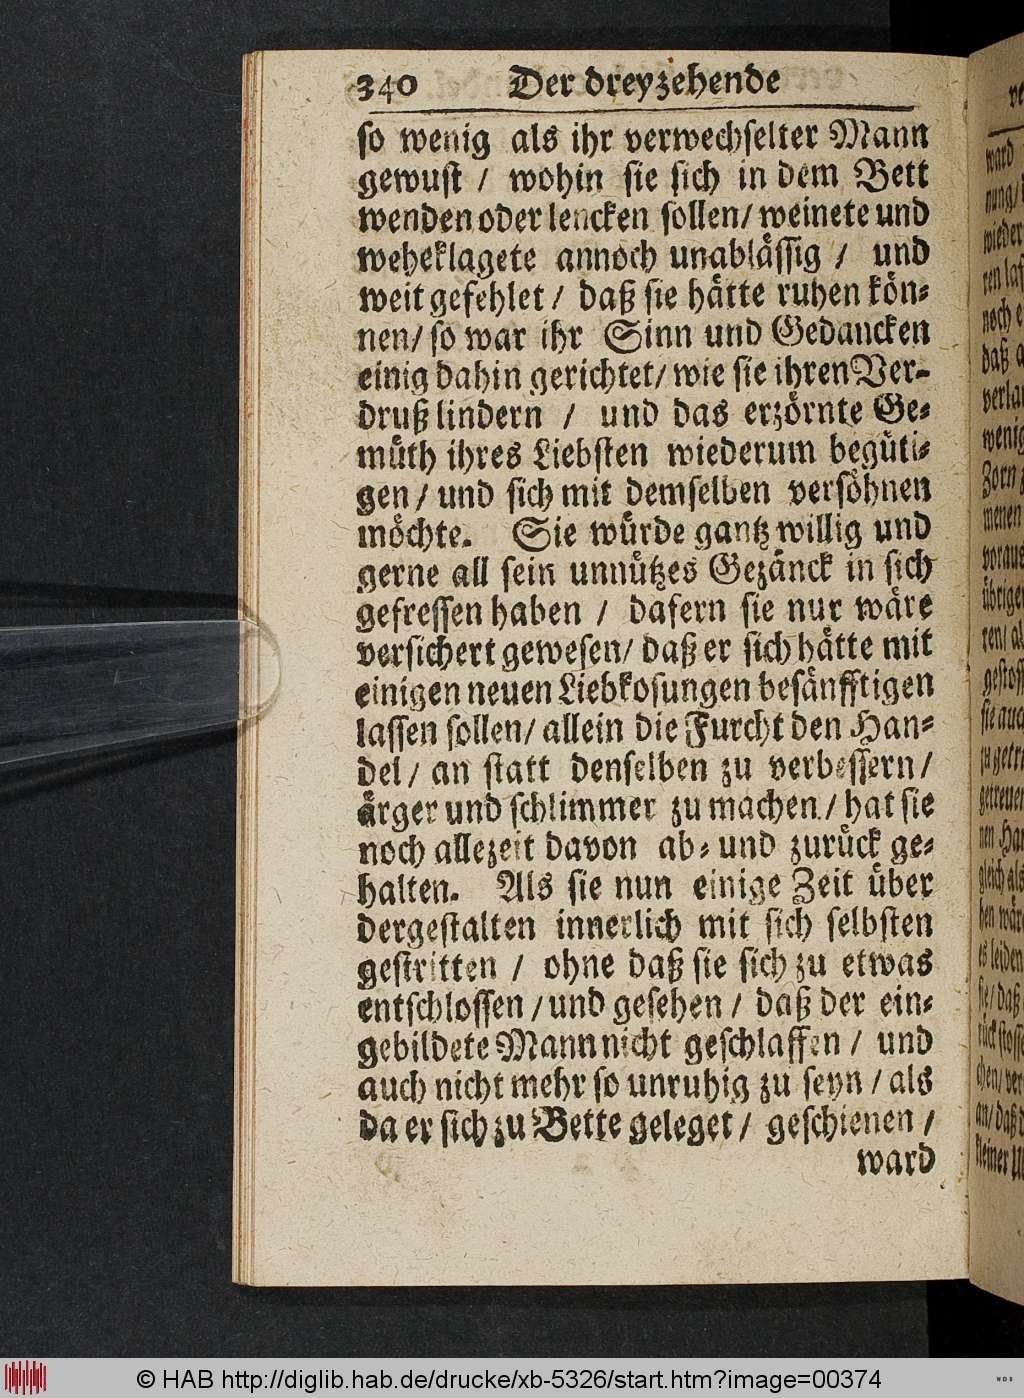 340 Der dreyzehende
so wenig als ihr verwechselter Mann
gewust / wohin sie sich in dem Bett
wenden oder lencken sollen / weinete und
weheklagete annoch unablässig / und
weit gefehlet / daß sie hätte ruhen kön-
nen / so war ihr Sinn und Gedancken
einig dahin gerichtet / wie sie ihren Ver-
druß lindern / und das erzörnte Ge-
müth ihres Liebsten wiederum begüti-
gen / und sich mit demselben versöhnen
möchte. Sie würde gantz willig und
gerne all sein unnützes Gezänck in sich
gefressen haben / dafern sie nur wäre
versichert gewesen / daß er sich hätte mit
einigen neuen Liebkosungen besänfftigen
lassen sollen / allein die Furcht den Han-
del / an statt denselben zu verbessern /
ärger und schlimmer zu machen / hat sie
noch allezeit davon ab- und zurück ge-
halten. Als sie nun einige Zeit über
dergestalten innerlich mit sich selbsten
gestritten / ohne daß sie sich zu etwas
entschlossen / und gesehen / daß der ein-
gebildete Mann nicht geschlaffen / und
auch nicht mehr so unruhig zu seyn / als
da er sich zu Bette geleget / geschienen /
ward
ward
wieder
noch
daß
wenig
Zorn
menen
gestoss
sie auc
gleich als
es leiden
sie / daß
© HAB http://diglib.hab.de/drucke/xb-5326/start.htm?image=00374